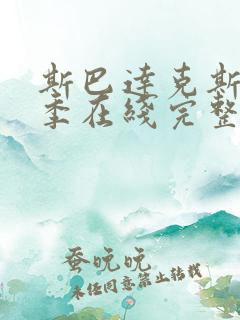 斯巴达克斯
季在线完整
蚕晚晚
未经同意禁止转载